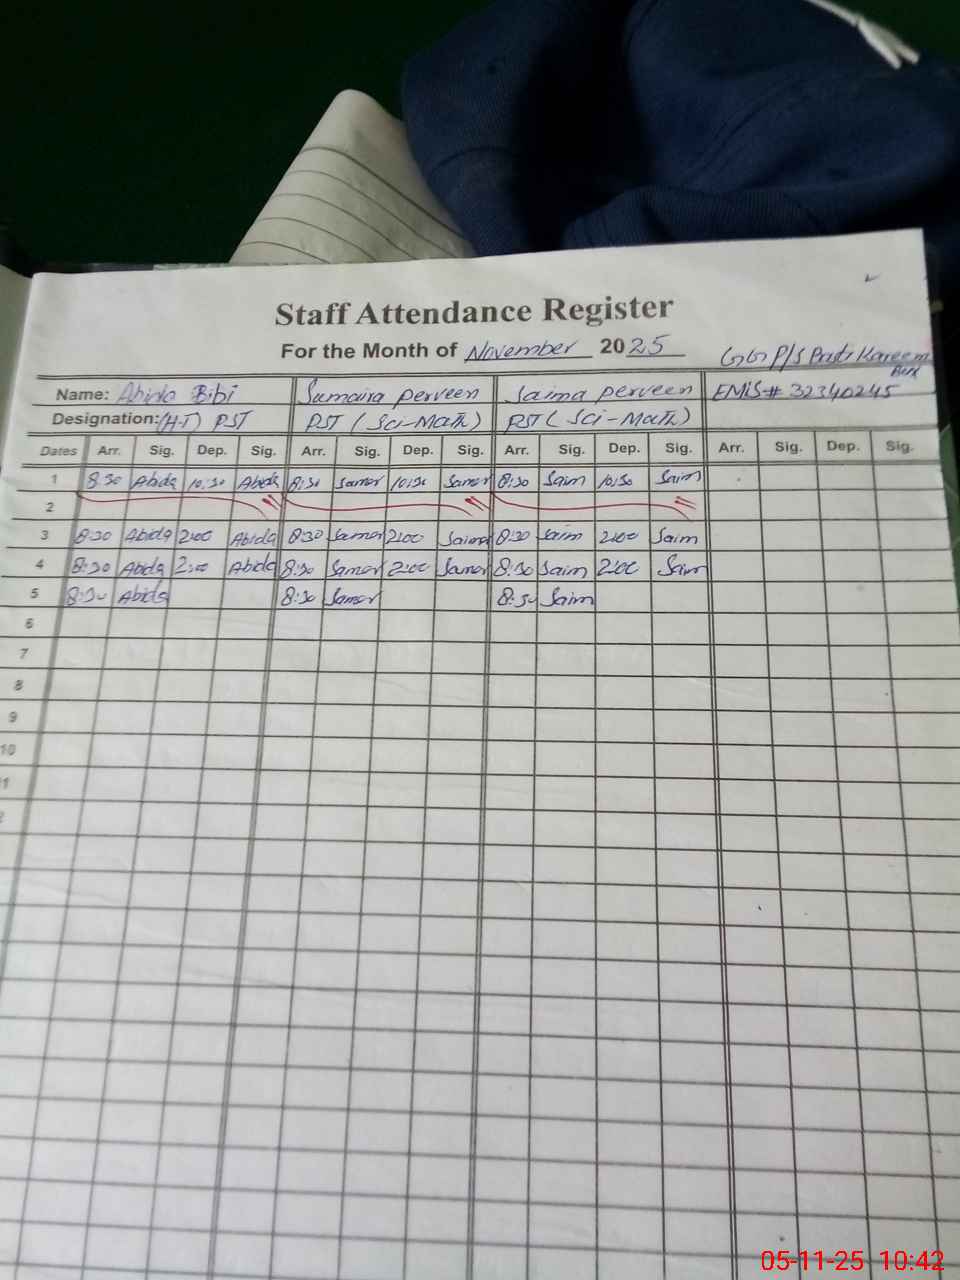 Staff Attendance Register
For the Month of November 2025
GG P/S Basti Kareem
Bux
Name: Abida Bibi Sumaira perveen Saima perveen EMIS# 32340245
Designation: (H-T) PST PST (Sci-Math) PST (Sci-Math)
Dates Arr. Sig. Dep. Sig. Arr. Sig. Dep. Sig. Arr. Sig. Dep. Sig. Arr. Sig. Dep. Sig.
1 8:30 Abida 10:30 Abida 8:30 Samar 10:30 Samar 8:30 Saim 10:30 Saim
2
3 8:30 Abida 2:00 Abida 8:30 Samar 2:00 Saimar 8:30 Saim 2:00 Saim
4 8:30 Abida 2:00 Abida 8:30 Samar 2:00 Samar 8:30 Saim 2:00 Saim
5 8:30 Abida 8:30 Samar 8:30 Saim
6
7
8
9
10
1
2
05-11-25 10:42